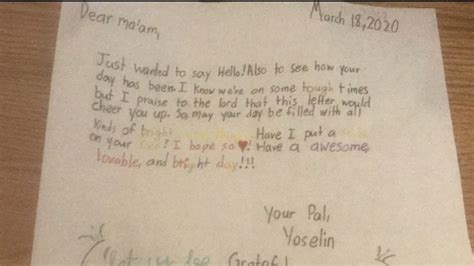 March 18, 2020
Dear ma'am,
Just wanted to say Hello! Also to see how your
day has been. I know we're on some tough times
but I praise to the lord that this letter would
cheer you up. So may your day be filled with all
kinds of bright Have I put a
on your face? I hope so♥! Have a awesome,
lovable, and bright day!!!
Your Pal,
Yoselin
Grateful